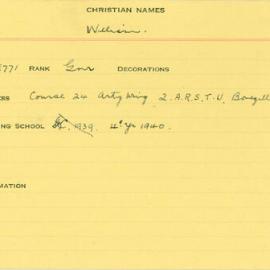 CHRISTIAN NAMES
William.
771 RANK Gnr DECORATIONS
ERS Course 24 Arty Wing 2. A.R.S.T.U. Bonegill
ING SCHOOL 1939. 4th Yr 1940.
MATION